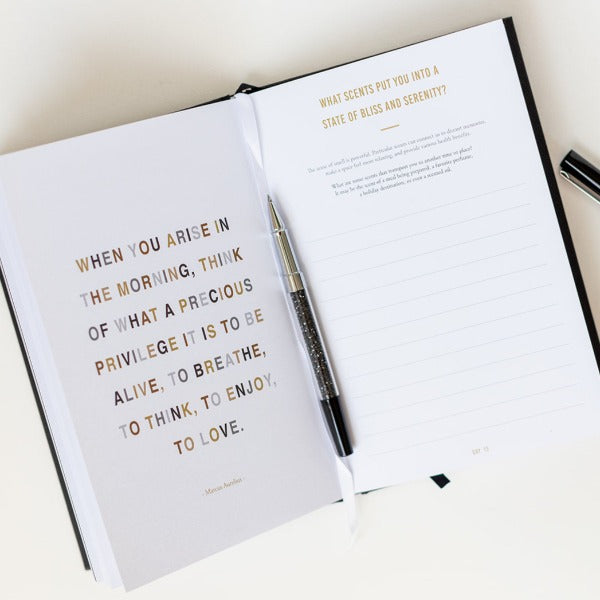 WHEN YOU ARISE IN
THE MORNING, THINK
OF WHAT A PRECIOUS
PRIVILEGE IT IS TO BE
ALIVE, TO BREATHE,
TO THINK, TO ENJOY,
TO LOVE.
- Marcus Aurelius -
WHAT SCENTS PUT YOU INTO A
STATE OF BLISS AND SERENITY?
The sense of smell is powerful. Particular scents can connect us to distant memories,
make a space feel more relaxing, and provide various health benefits.
What are some scents that transport you to another time or place?
It may be the scent of a meal being prepared, a favorite perfume,
a holiday destination, or even a scented oil.
DAY 13